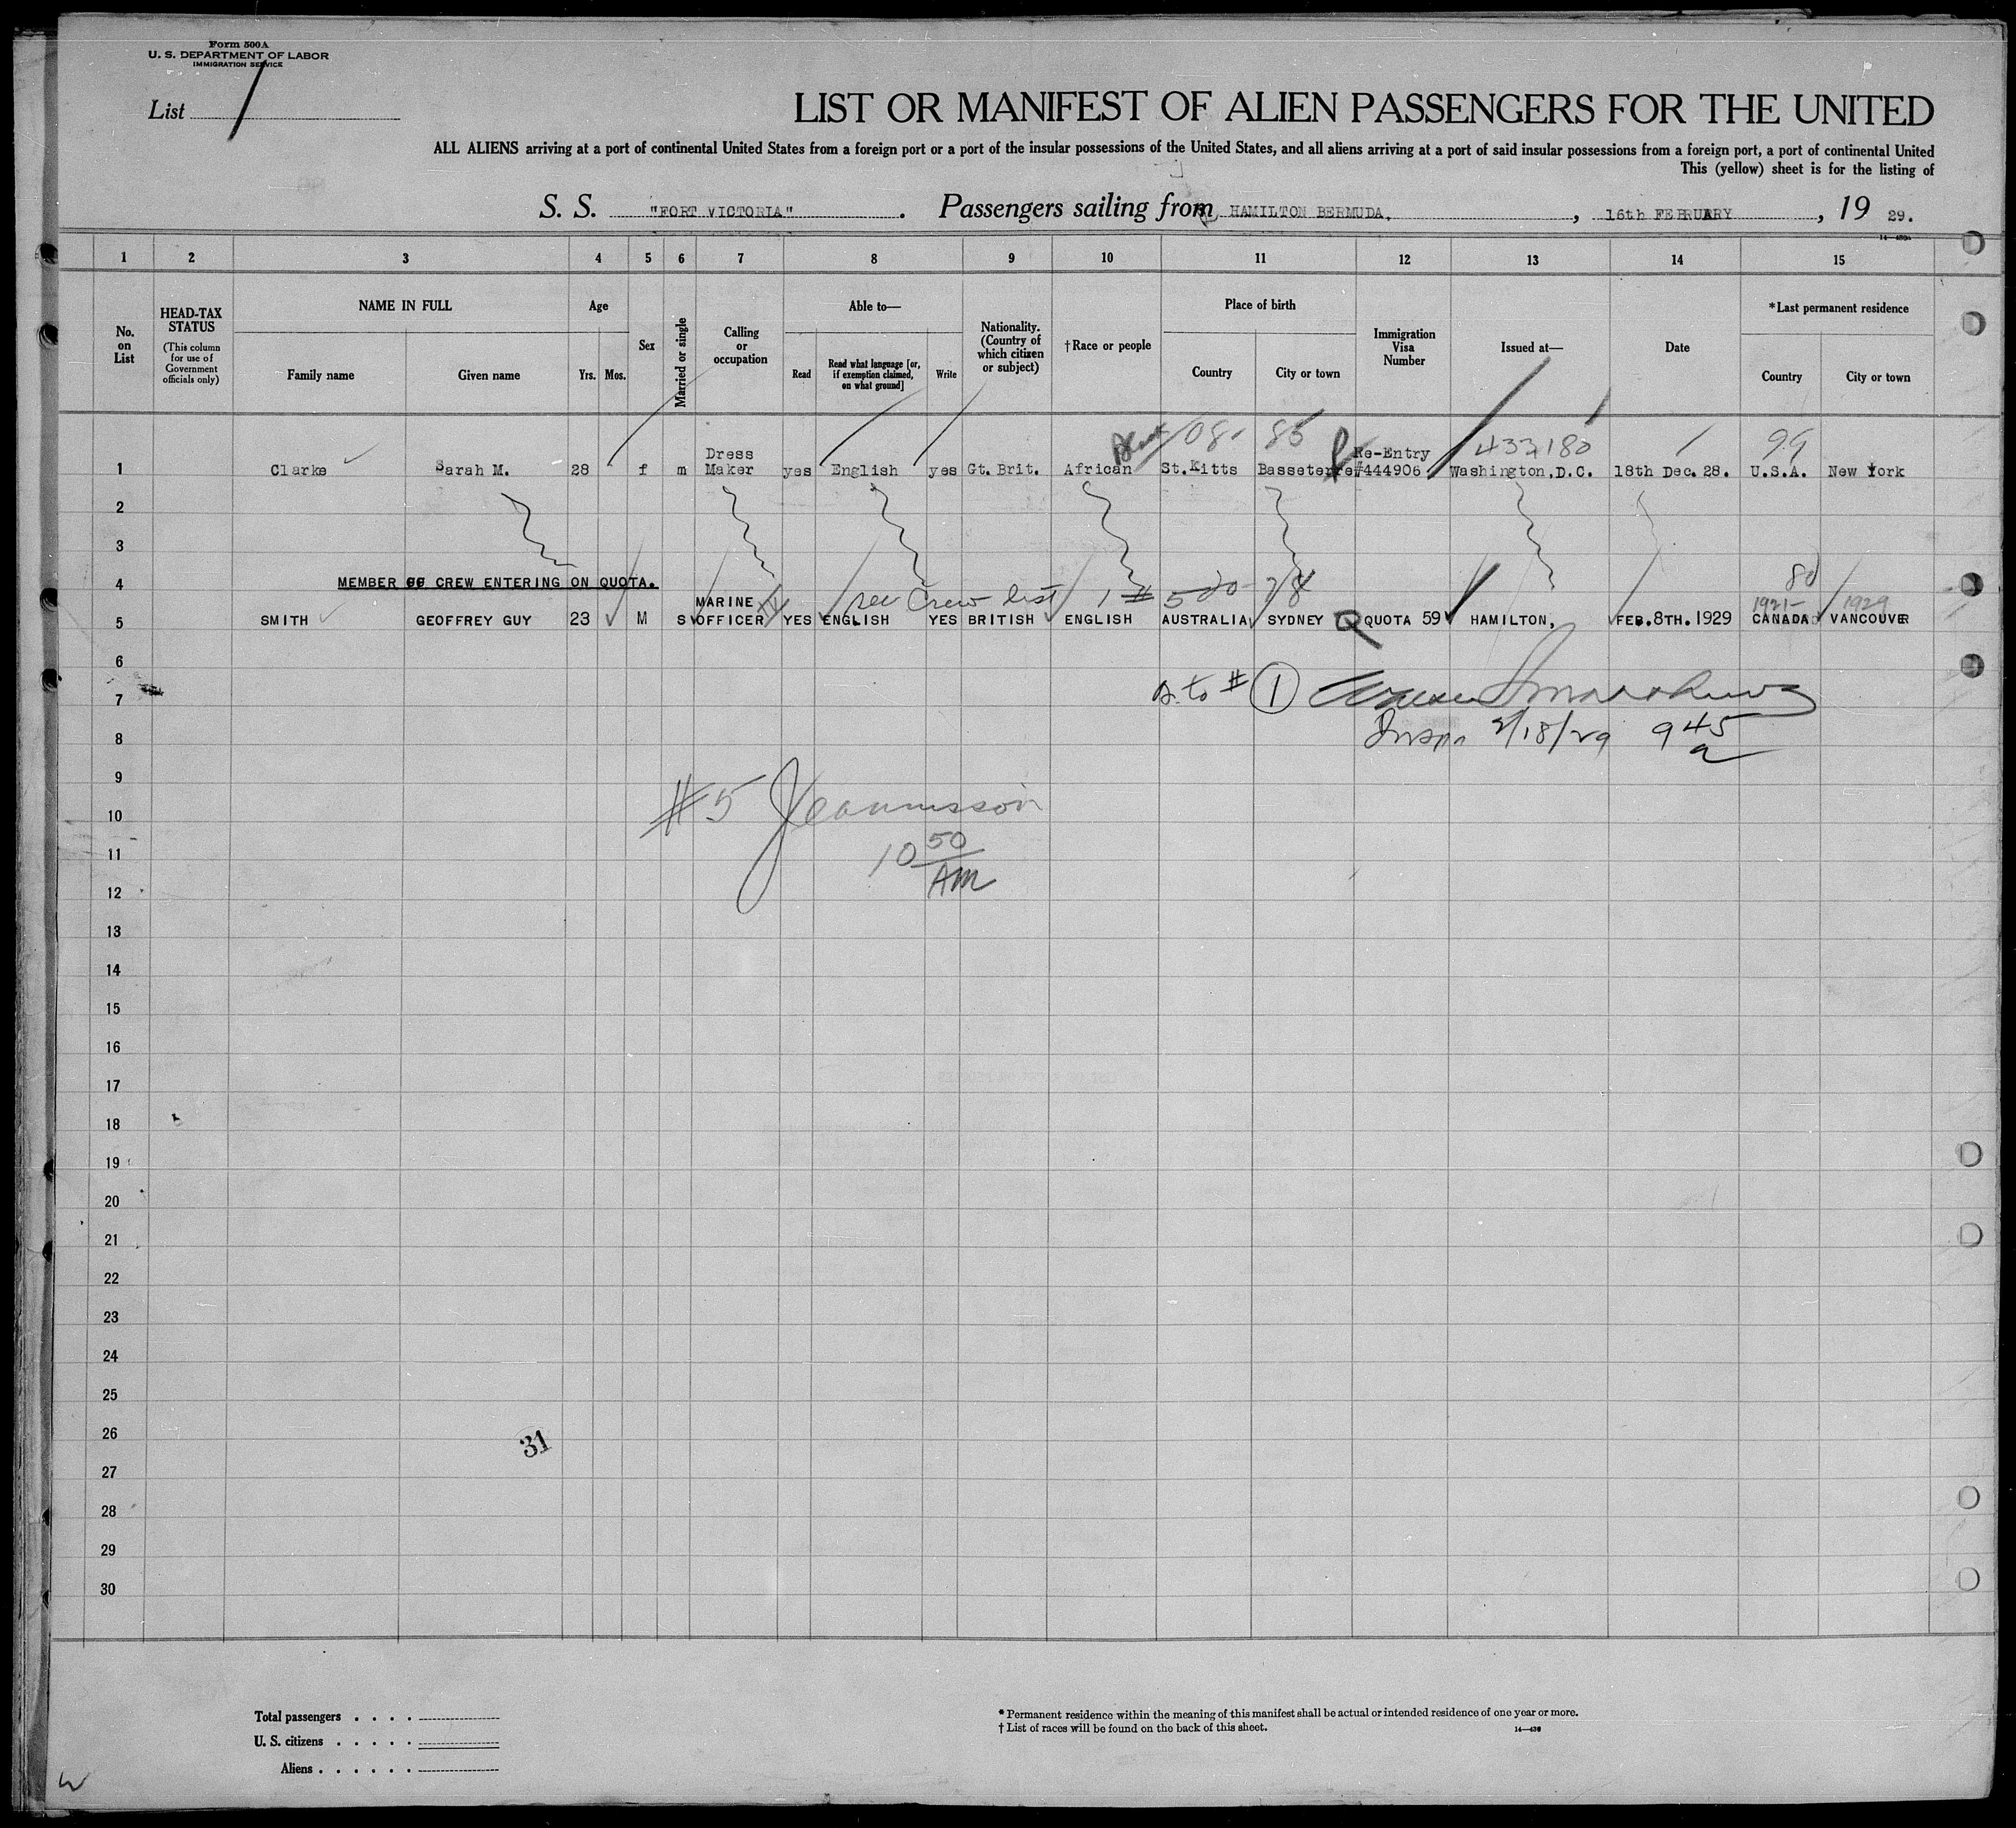 Form 500A
U. S. DEPARTMENT OF LABOR
IMMIGRATION SERVICE
List 1
LIST OR MANIFEST OF ALIEN PASSENGERS FOR THE UNITED
ALL ALIENS arriving at a port of continental United States from a foreign port or a port of the insular possessions of the United States, and all aliens arriving at a port of said insular possessions from a foreign port, a port of continental United
This (yellow) sheet is for the listing of
S. S. "FORT VICTORIA" . Passengers sailing from HAMILTON BERMUDA. , 16th FEBRUARY , 19 29.
1 2 3 4 5 6 7 8 9 10 11 12 13 14 15
No. on List
HEAD-TAX STATUS
(This column for use of Government officials only)
NAME IN FULL
Family name Given name
Age
Yrs. Mos.
Sex
Married or single
Calling or occupation
Able to—
Read
Read what language [or, if exemption claimed, on what ground]
Write
Nationality. (Country of which citizen or subject)
†Race or people
Place of birth
Country City or town
Immigration Visa Number
Issued at—
Date
*Last permanent residence
Country City or town
08- 85 433180 99
1 Clarke Sarah M. 28 f m Dress Maker yes English yes Gt. Brit. African St.Kitts Basseterre Re-Entry #444906 Washington,D.C. 18th Dec.28. U.S.A. New York
2
3
4 MEMBER OF CREW ENTERING ON QUOTA.
see Crew list 80
1921- 1929
5 SMITH GEOFFREY GUY 23 M S MARINE OFFICER YES ENGLISH YES BRITISH ENGLISH AUSTRALIA SYDNEY Q QUOTA 59 HAMILTON, FEB.8TH.1929 CANADA VANCOUVER
6
7 as to # 1
8 Insp. 2/18/29 945 a
9
10 #5
11 10 50
12 AM
13
14
15
16
17
18
19
20
21
22
23
24
25
26 31
27
28
29
30
Total passengers . . . .
U. S. citizens . . . . .
Aliens . . . . . .
* Permanent residence within the meaning of this manifest shall be actual or intended residence of one year or more.
† List of races will be found on the back of this sheet.
14—430